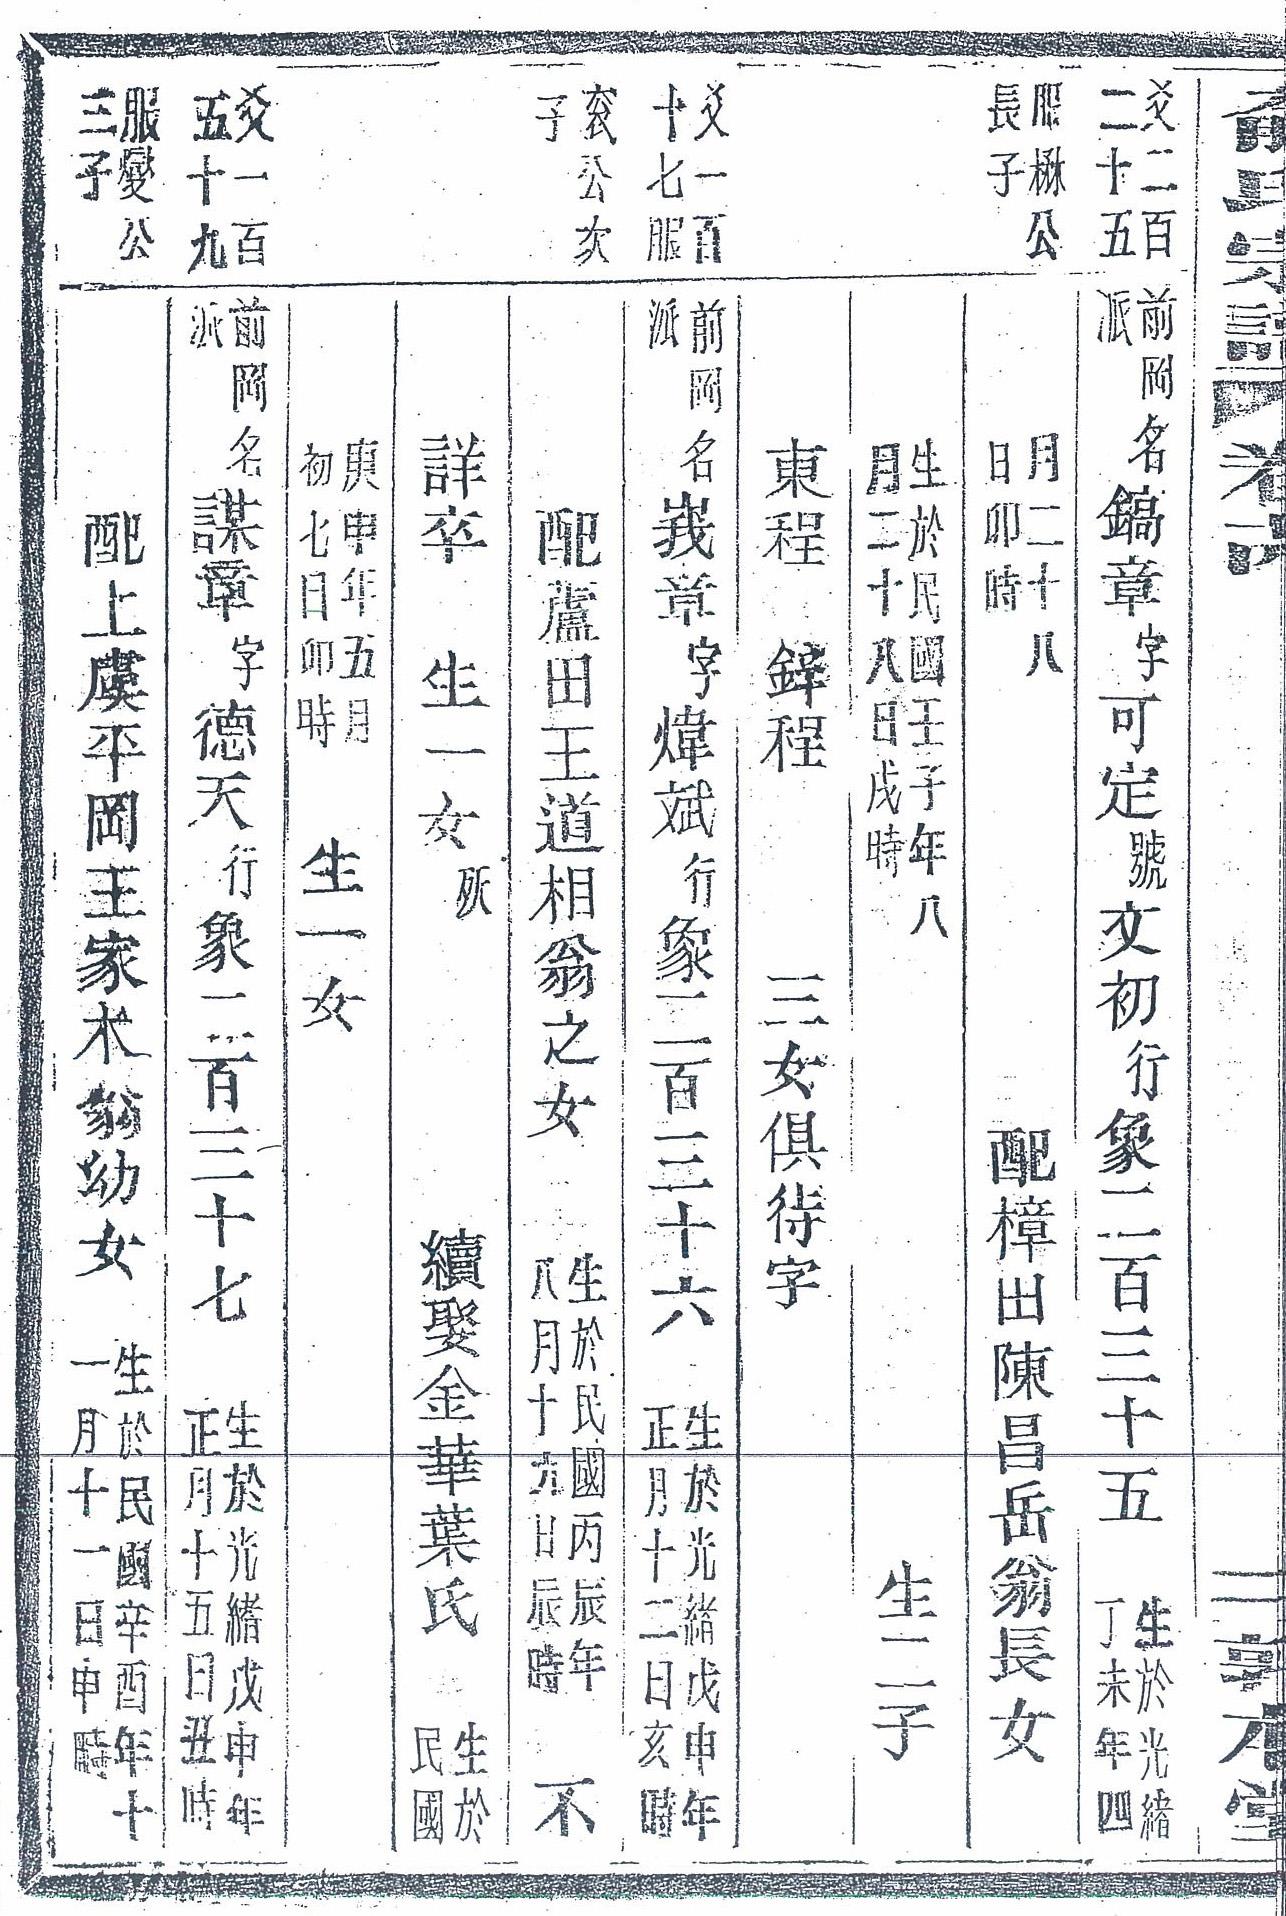 俞氏宗譜 卷六 二 敦本堂
爻二百二十五服楙公長子
前岡派名鎬章字可定號文初行象二百三十五 生於光緒丁未年四
月二十八日卯時 配樟出陳昌岳翁長女
生於民國壬子年八月二十八日戌時 生二子
東程 鋅程 三女俱待字
爻一百十七服袞公次子
前岡派名峩章字煒斌行象二百三十六 生於光緒戊申年正月十二日亥時
配蘆田王道相翁之女 生於民國丙辰年八月十九日辰時 不
詳卒 生一女 殀 續娶金華葉氏 生於民國
庚申年五月初七日卯時 生一女
爻一百五十九服變公三子
前岡派名謀章字德天行象二百三十七 生於光緒戊申年正月十五日丑時
配上虞平岡王家木翁幼女 生於民國辛酉年十一月十一日申時